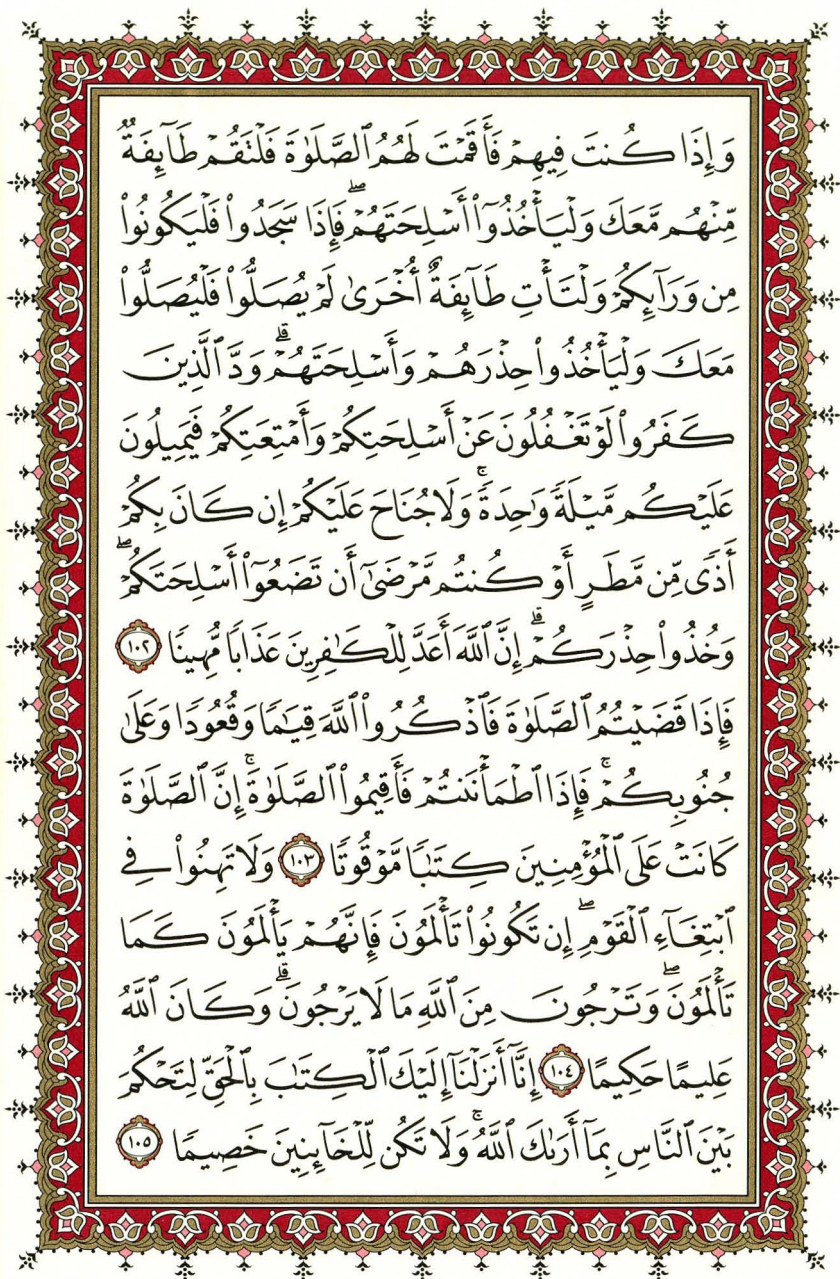 وَإِذَا كُنتَ فِيهِمْ فَأَقَمْتَ لَهُمُ ٱلصَّلَوٰةَ فَلْتَقُمْ طَآئِفَةٌ
مِّنْهُم مَّعَكَ وَلْيَأْخُذُوٓا۟ أَسْلِحَتَهُمْۖ فَإِذَا سَجَدُوا۟ فَلْيَكُونُوا۟
مِن وَرَآئِكُمْ وَلْتَأْتِ طَآئِفَةٌ أُخْرَىٰ لَمْ يُصَلُّوا۟ فَلْيُصَلُّوا۟
مَعَكَ وَلْيَأْخُذُوا۟ حِذْرَهُمْ وَأَسْلِحَتَهُمْۗ وَدَّ ٱلَّذِينَ
كَفَرُوا۟ لَوْ تَغْفُلُونَ عَنْ أَسْلِحَتِكُمْ وَأَمْتِعَتِكُمْ فَيَمِيلُونَ
عَلَيْكُم مَّيْلَةً وَٰحِدَةًۚ وَلَا جُنَاحَ عَلَيْكُمْ إِن كَانَ بِكُمْ
أَذًى مِّن مَّطَرٍ أَوْ كُنتُم مَّرْضَىٰٓ أَن تَضَعُوٓا۟ أَسْلِحَتَكُمْۖ
وَخُذُوا۟ حِذْرَكُمْۗ إِنَّ ٱللَّهَ أَعَدَّ لِلْكَٰفِرِينَ عَذَابًا مُّهِينًا ١٠٢
فَإِذَا قَضَيْتُمُ ٱلصَّلَوٰةَ فَٱذْكُرُوا۟ ٱللَّهَ قِيَٰمًا وَقُعُودًا وَعَلَىٰ
جُنُوبِكُمْۚ فَإِذَا ٱطْمَأْنَنتُمْ فَأَقِيمُوا۟ ٱلصَّلَوٰةَۚ إِنَّ ٱلصَّلَوٰةَ
كَانَتْ عَلَى ٱلْمُؤْمِنِينَ كِتَٰبًا مَّوْقُوتًا ١٠٣ وَلَا تَهِنُوا۟ فِى
ٱبْتِغَآءِ ٱلْقَوْمِۖ إِن تَكُونُوا۟ تَأْلَمُونَ فَإِنَّهُمْ يَأْلَمُونَ كَمَا
تَأْلَمُونَۖ وَتَرْجُونَ مِنَ ٱللَّهِ مَا لَا يَرْجُونَۗ وَكَانَ ٱللَّهُ
عَلِيمًا حَكِيمًا ١٠٤ إِنَّآ أَنزَلْنَآ إِلَيْكَ ٱلْكِتَٰبَ بِٱلْحَقِّ لِتَحْكُمَ
بَيْنَ ٱلنَّاسِ بِمَآ أَرَىٰكَ ٱللَّهُۚ وَلَا تَكُن لِّلْخَآئِنِينَ خَصِيمًا ١٠٥